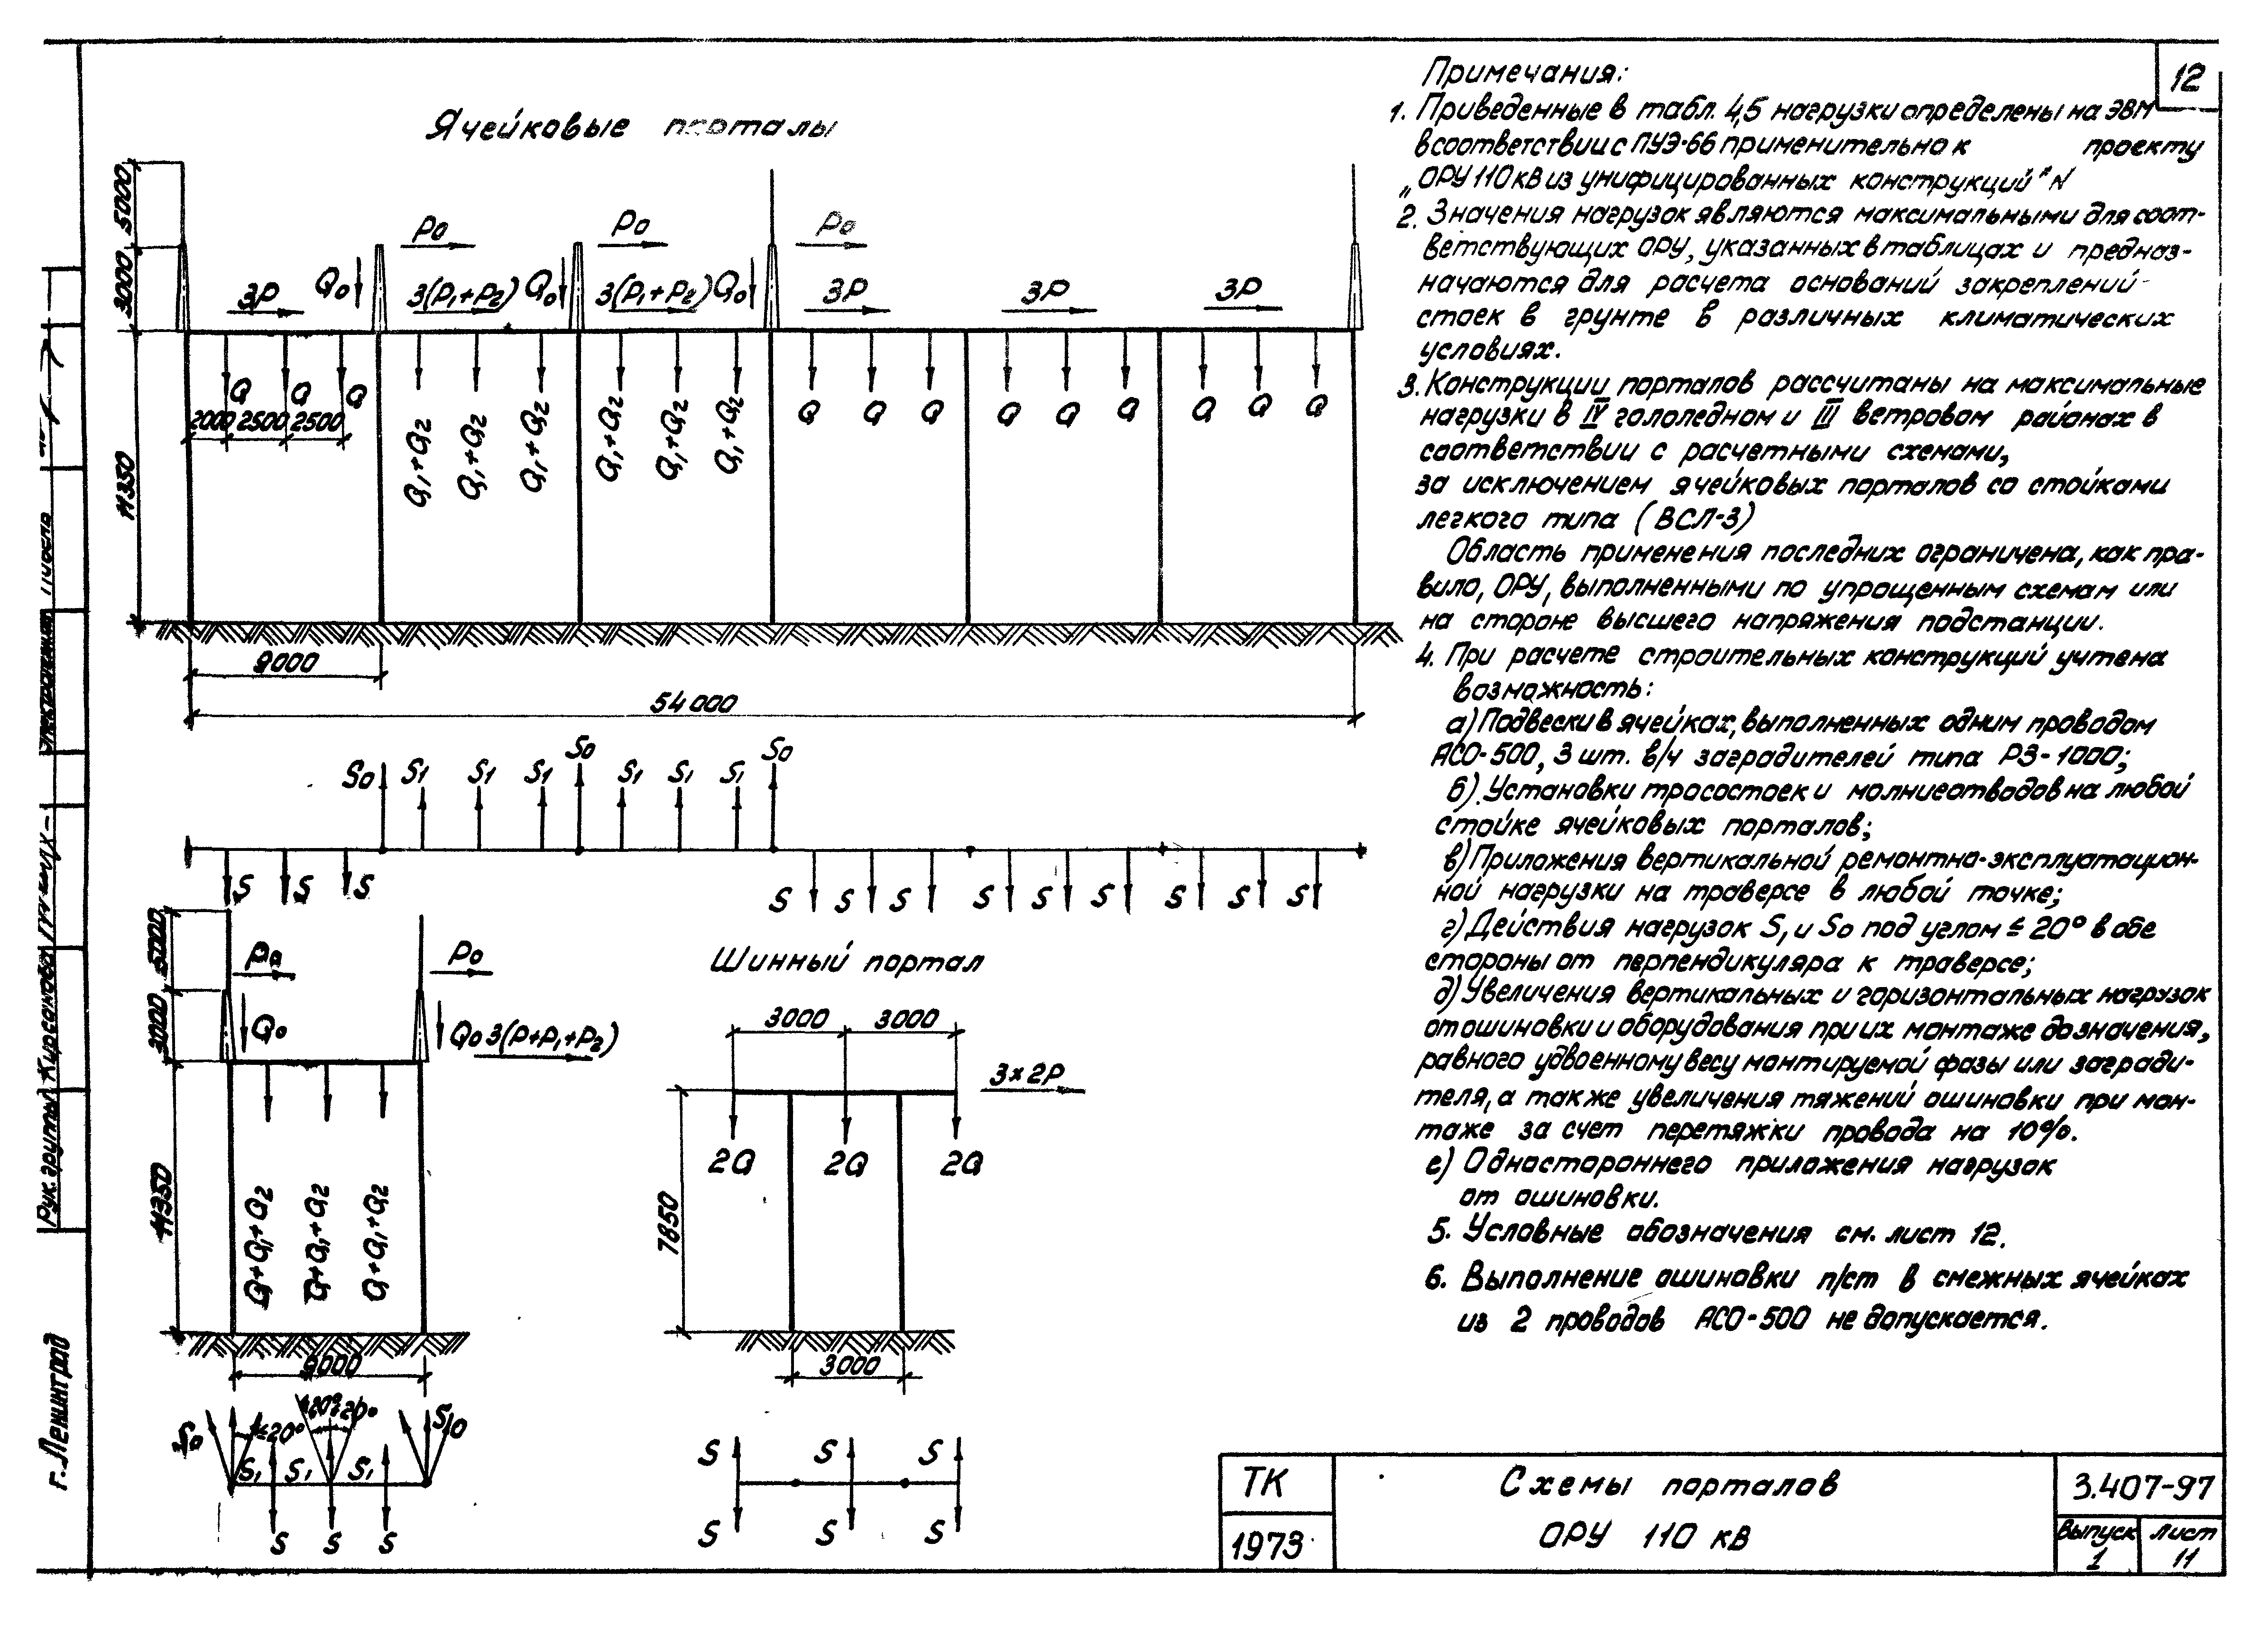 12
Ячейковые порталы
5000
3000
11350
3P
Q₀
P₀
3(P₁+P₂)
Q₀
P₀
3(P₁+P₂)
Q₀
P₀
3P
3P
3P
Q Q Q
2000 2500 2500
Q₁+Q₂ Q₁+Q₂ Q₁+Q₂
Q₁+Q₂ Q₁+Q₂ Q₁+Q₂
Q Q Q Q Q Q Q Q Q
9000
54000
S₀ S₁ S₁ S₁ S₀ S₁ S₁ S₁ S₀
S S S
S S S S S S S S S
5000
3000
11350
P₀
Q₀
P₀
Q₀ 3(P+P₁+P₂)
Q+Q₁+Q₂ Q+Q₁+Q₂ Q+Q₁+Q₂
9000
S₀ ≤20° ≤20° ≤20° S₁₀
S₁ S₁ S₁
S S S
Шинный портал
3000 3000
3×2P
2Q 2Q 2Q
7850
3000
S S S
S S S
Примечания:
1. Приведенные в табл. 4,5 нагрузки определены на ЭВМ
в соответствии с ПУЭ-66 применительно к проекту
„ОРУ 110 кВ из унифицированных конструкций" N
2. Значения нагрузок являются максимальными для соот-
ветствующих ОРУ, указанных в таблицах и предназ-
начаются для расчета оснований закреплений
стоек в грунте в различных климатических
условиях.
3. Конструкции порталов рассчитаны на максимальные
нагрузки в IV гололедном и III ветровом районах в
соответствии с расчетными схемами,
за исключением ячейковых порталов со стойками
легкого типа (ВСЛ-3)
Область применения последних ограничена, как пра-
вило, ОРУ, выполненными по упрощенным схемам или
на стороне высшего напряжения подстанции.
4. При расчете строительных конструкций учтена
возможность:
а) Подвески в ячейках, выполненных одним проводом
АСО-500, 3 шт. в/ч заградителей типа РЗ-1000;
б) Установки тросостоек и молниеотводов на любой
стойке ячейковых порталов;
в) Приложения вертикальной ремонтно-эксплуатацион-
ной нагрузки на траверсе в любой точке;
г) Действия нагрузок S₁ и S₀ под углом ≤ 20° в обе
стороны от перпендикуляра к траверсе;
д) Увеличения вертикальных и горизонтальных нагрузок
от ошиновки и оборудования при их монтаже до значения,
равного удвоенному весу монтируемой фазы или загради-
теля, а также увеличения тяжений ошиновки при мон-
таже за счет перетяжки провода на 10%.
е) Одностороннего приложения нагрузок
от ошиновки.
5. Условные обозначения см. лист 12.
6. Выполнение ошиновки п/ст в смежных ячейках
из 2 проводов АСО-500 не допускается.
Рук. группы Кирсанова
г. Ленинград
ТК
1973
Схемы порталов
ОРУ 110 кВ
3.407-97
Выпуск
1
Лист
11